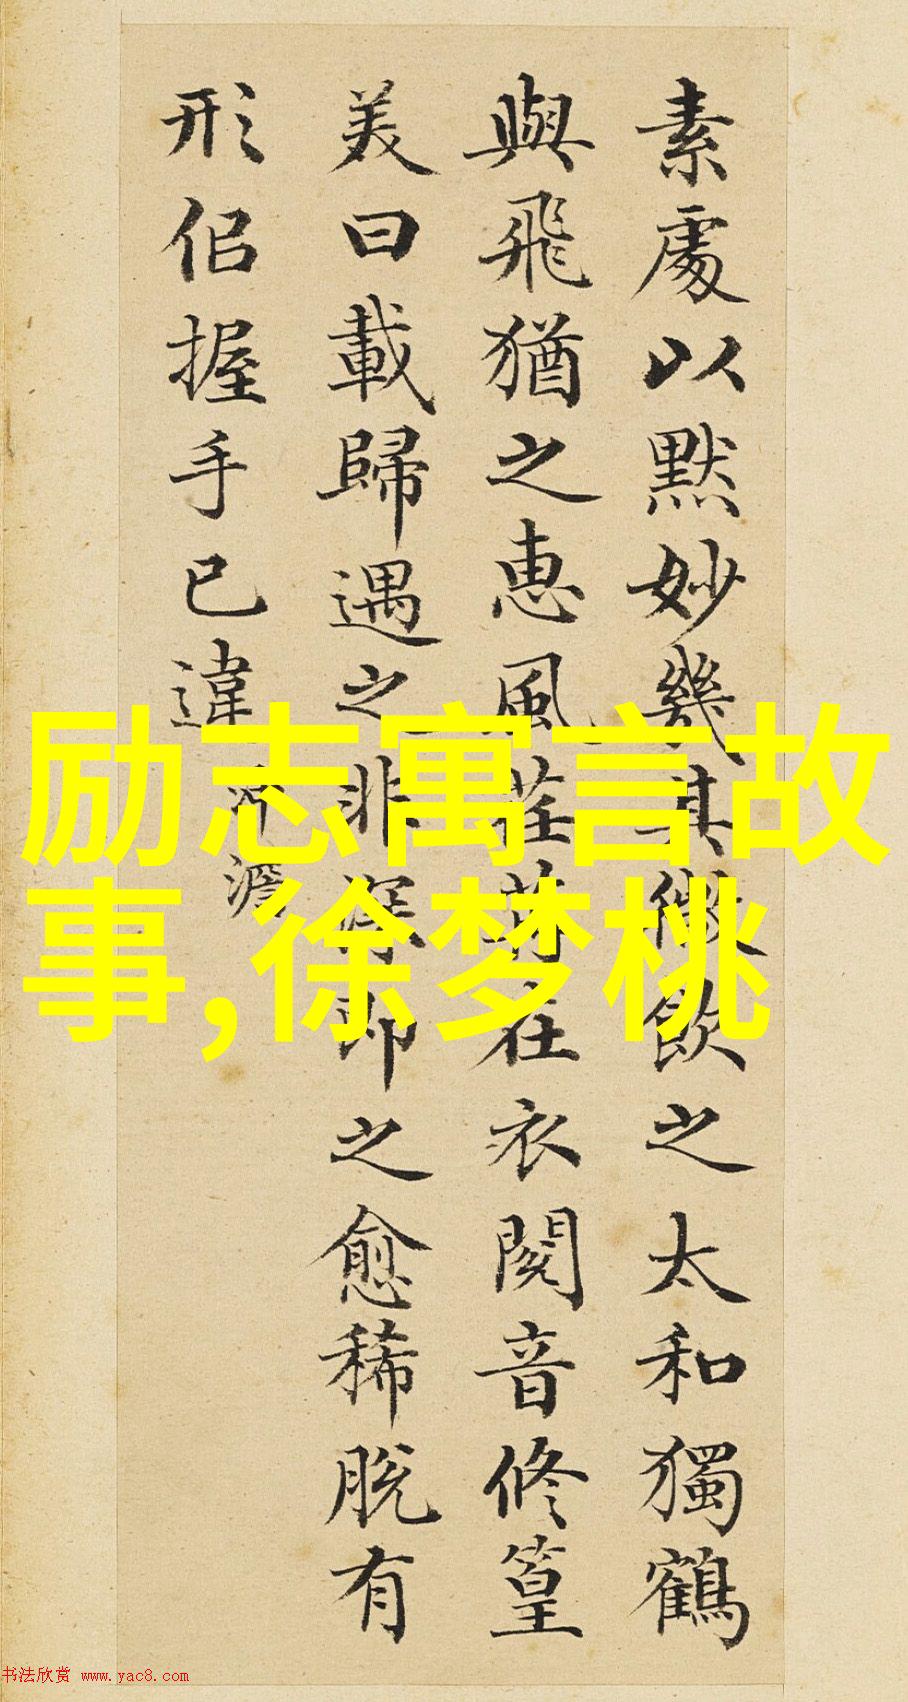 素處以默妙幾其微飲之太和獨鶴
與飛猶之惠風荏苒在衣閱音修篁
美曰載歸遇之非深即之愈稀脫有
形佀握手已違
沖澹
励志寓言故
事,徐梦桃
书法欣赏 www.yac8.com